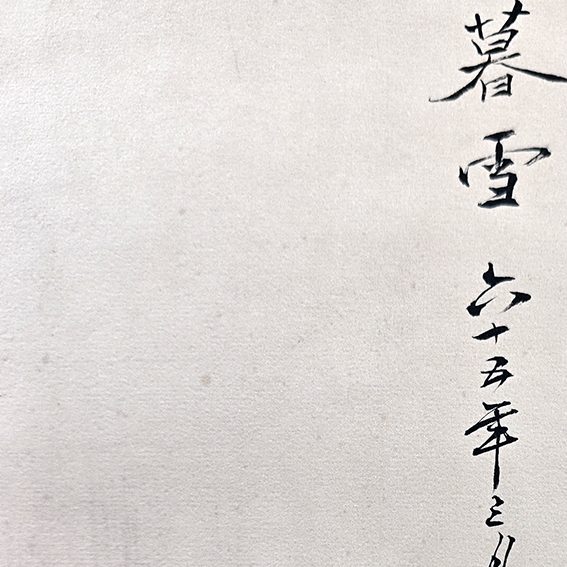 暮雪 六十五年三月